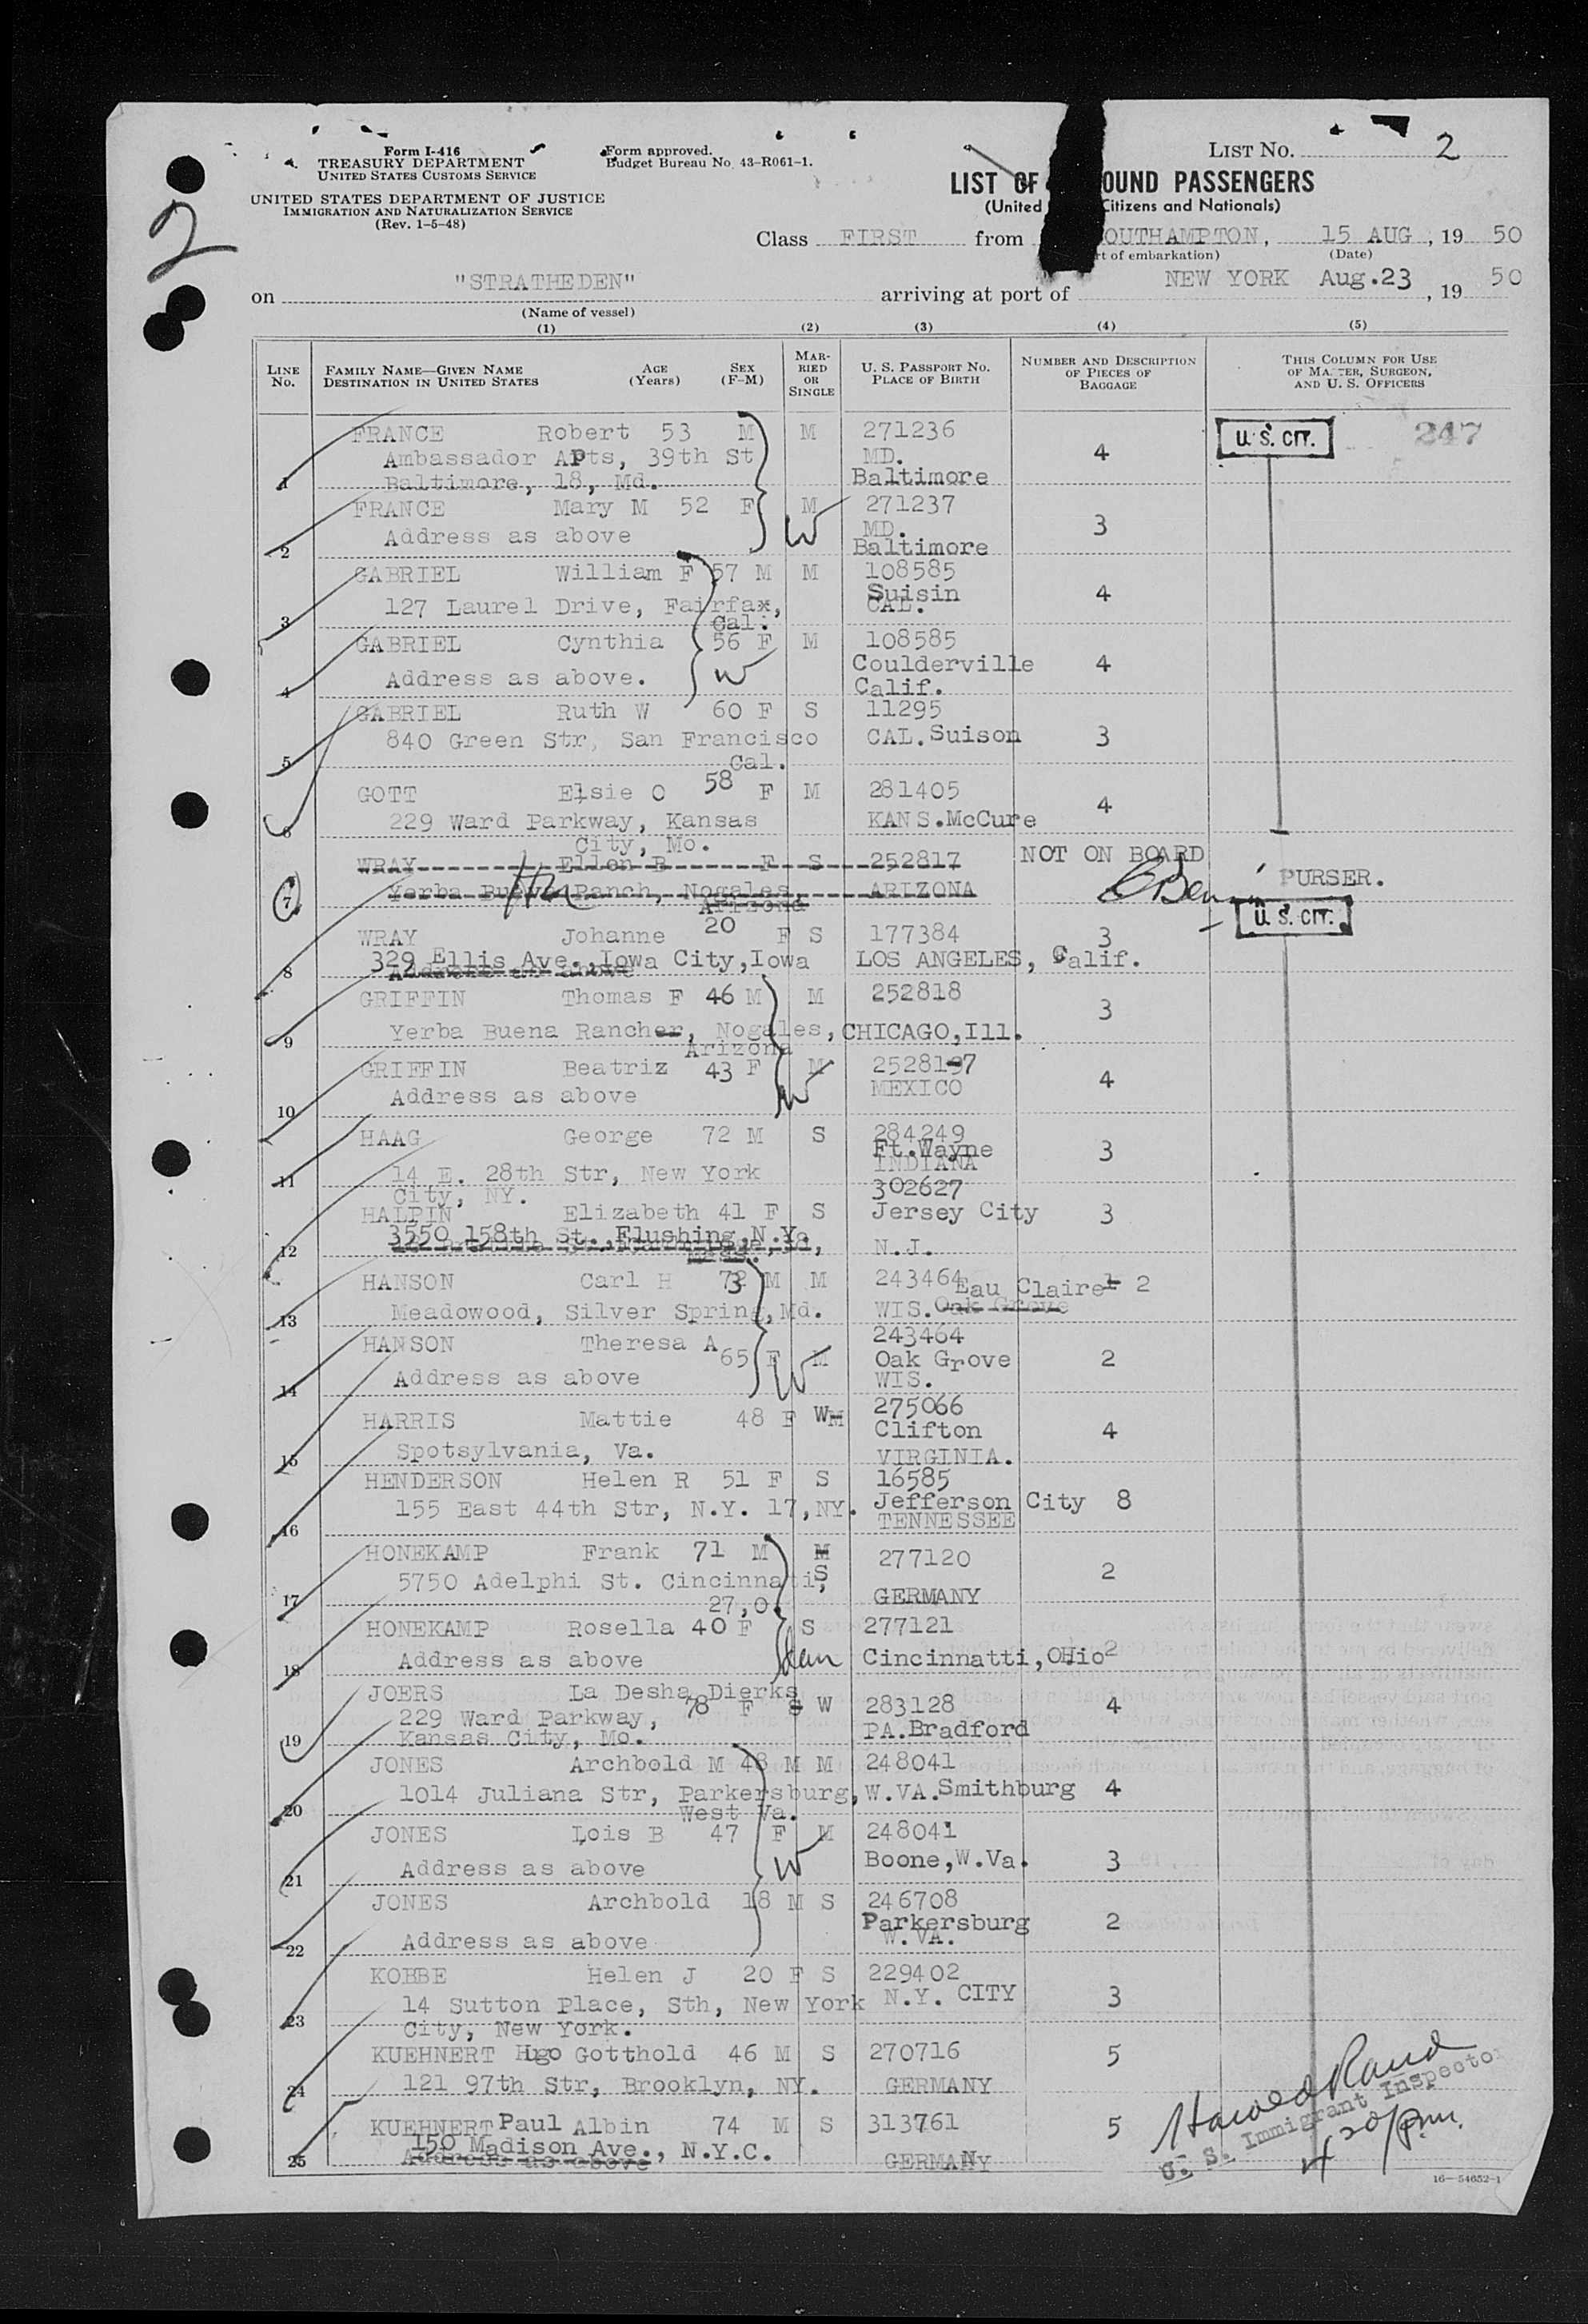 Form I-416
TREASURY DEPARTMENT
UNITED STATES CUSTOMS SERVICE
UNITED STATES DEPARTMENT OF JUSTICE
IMMIGRATION AND NATURALIZATION SERVICE
(Rev. 1-5-48)
Form approved.
Budget Bureau No. 43-R061-1.
LIST NO. 2
2
LIST OF OUND PASSENGERS
(United Citizens and Nationals)
Class FIRST from OUTHAMPTON, 15 AUG, 19 50
rt of embarkation) (Date)
on "STRATHEDEN" arriving at port of NEW YORK Aug.23, 19 50
(Name of vessel)
(1) (2) (3) (4) (5)
LINE NO.
FAMILY NAME—GIVEN NAME AGE SEX
DESTINATION IN UNITED STATES (Years) (F-M)
MARRIED OR SINGLE
U. S. PASSPORT NO.
PLACE OF BIRTH
NUMBER AND DESCRIPTION
OF PIECES OF
BAGGAGE
THIS COLUMN FOR USE
OF MASTER, SURGEON,
AND U. S. OFFICERS
FRANCE Robert 53 M M 271236 4 U. S. CIT. 247
Ambassador Apts, 39th St MD.
1 Baltimore, 18, Md. Baltimore
FRANCE Mary M 52 F M 271237 3
Address as above W MD.
2 Baltimore
GABRIEL William F 57 M M 108585 4
127 Laurel Drive, Fairfax, Suisin CAL.
3 Cal.
GABRIEL Cynthia 56 F M 108585 4
Address as above. W Coulderville
4 Calif.
GABRIEL Ruth W 60 F S 11295
840 Green Str, San Francisco CAL. Suison 3
5 Cal.
GOTT Elsie O 58 F M 281405 4
6 229 Ward Parkway, Kansas KANS. McCure
City, Mo.
WRAY Ellen B F S 252817 NOT ON BOARD
7 Yerba Buena Ranch, Nogales, ARIZONA PURSER.
Arizona
U. S. CIT.
WRAY Johanne 20 F S 177384 3
8 329 Ellis Ave., Iowa City, Iowa LOS ANGELES, Calif.
GRIFFIN Thomas F 46 M M 252818 3
9 Yerba Buena Rancher, Nogales, CHICAGO, Ill.
Arizona
GRIFFIN Beatriz 43 F M 2528197 4
10 Address as above W MEXICO
HAAG George 72 M S 284249 3
Ft.Wayne
11 14 E. 28th Str, New York INDIANA
City, NY. 302627
HALPIN Elizabeth 41 F S Jersey City 3
12 3550 158th St., Flushing, N.Y. N.J.
HANSON Carl H 73 M M 243464 Eau Claire 1 2
13 Meadowood, Silver Spring, Md. WIS. Oak Grove
HANSON Theresa A 65 F M 243464
Oak Grove 2
14 Address as above W WIS.
HARRIS Mattie 48 F WM 275066
Clifton 4
15 Spotsylvania, Va. VIRGINIA.
HENDERSON Helen R 51 F S 16585
155 East 44th Str, N.Y. 17, NY. Jefferson City 8
16 TENNESSEE
HONEKAMP Frank 71 M M S 277120 2
17 5750 Adelphi St. Cincinnati, GERMANY
27, O.
HONEKAMP Rosella 40 F S 277121
18 Address as above Cincinnatti, OHio 2
JOERS La Desha Dierks
229 Ward Parkway, 78 F S W 283128 4
19 Kansas City, Mo. PA. Bradford
JONES Archbold M 48 M M 248041
20 1014 Juliana Str, Parkersburg, W.VA. Smithburg 4
West Va.
JONES Lois B 47 F M 248041
21 Address as above W Boone, W.Va. 3
JONES Archbold 18 M S 246708
Parkersburg 2
22 Address as above W.VA.
KOBBE Helen J 20 F S 229402
23 14 Sutton Place, Sth, New York N.Y. CITY 3
City, New York.
KUEHNERT Hugo Gotthold 46 M S 270716 5
24 121 97th Str, Brooklyn, NY. GERMANY
KUEHNERT Paul Albin 74 M S 313761 5
150 Madison Ave., N.Y.C.
25 Address as above GERMANY
Harold Rand
U. S. Immigrant Inspector
4 20 p.m.
16—54652-1